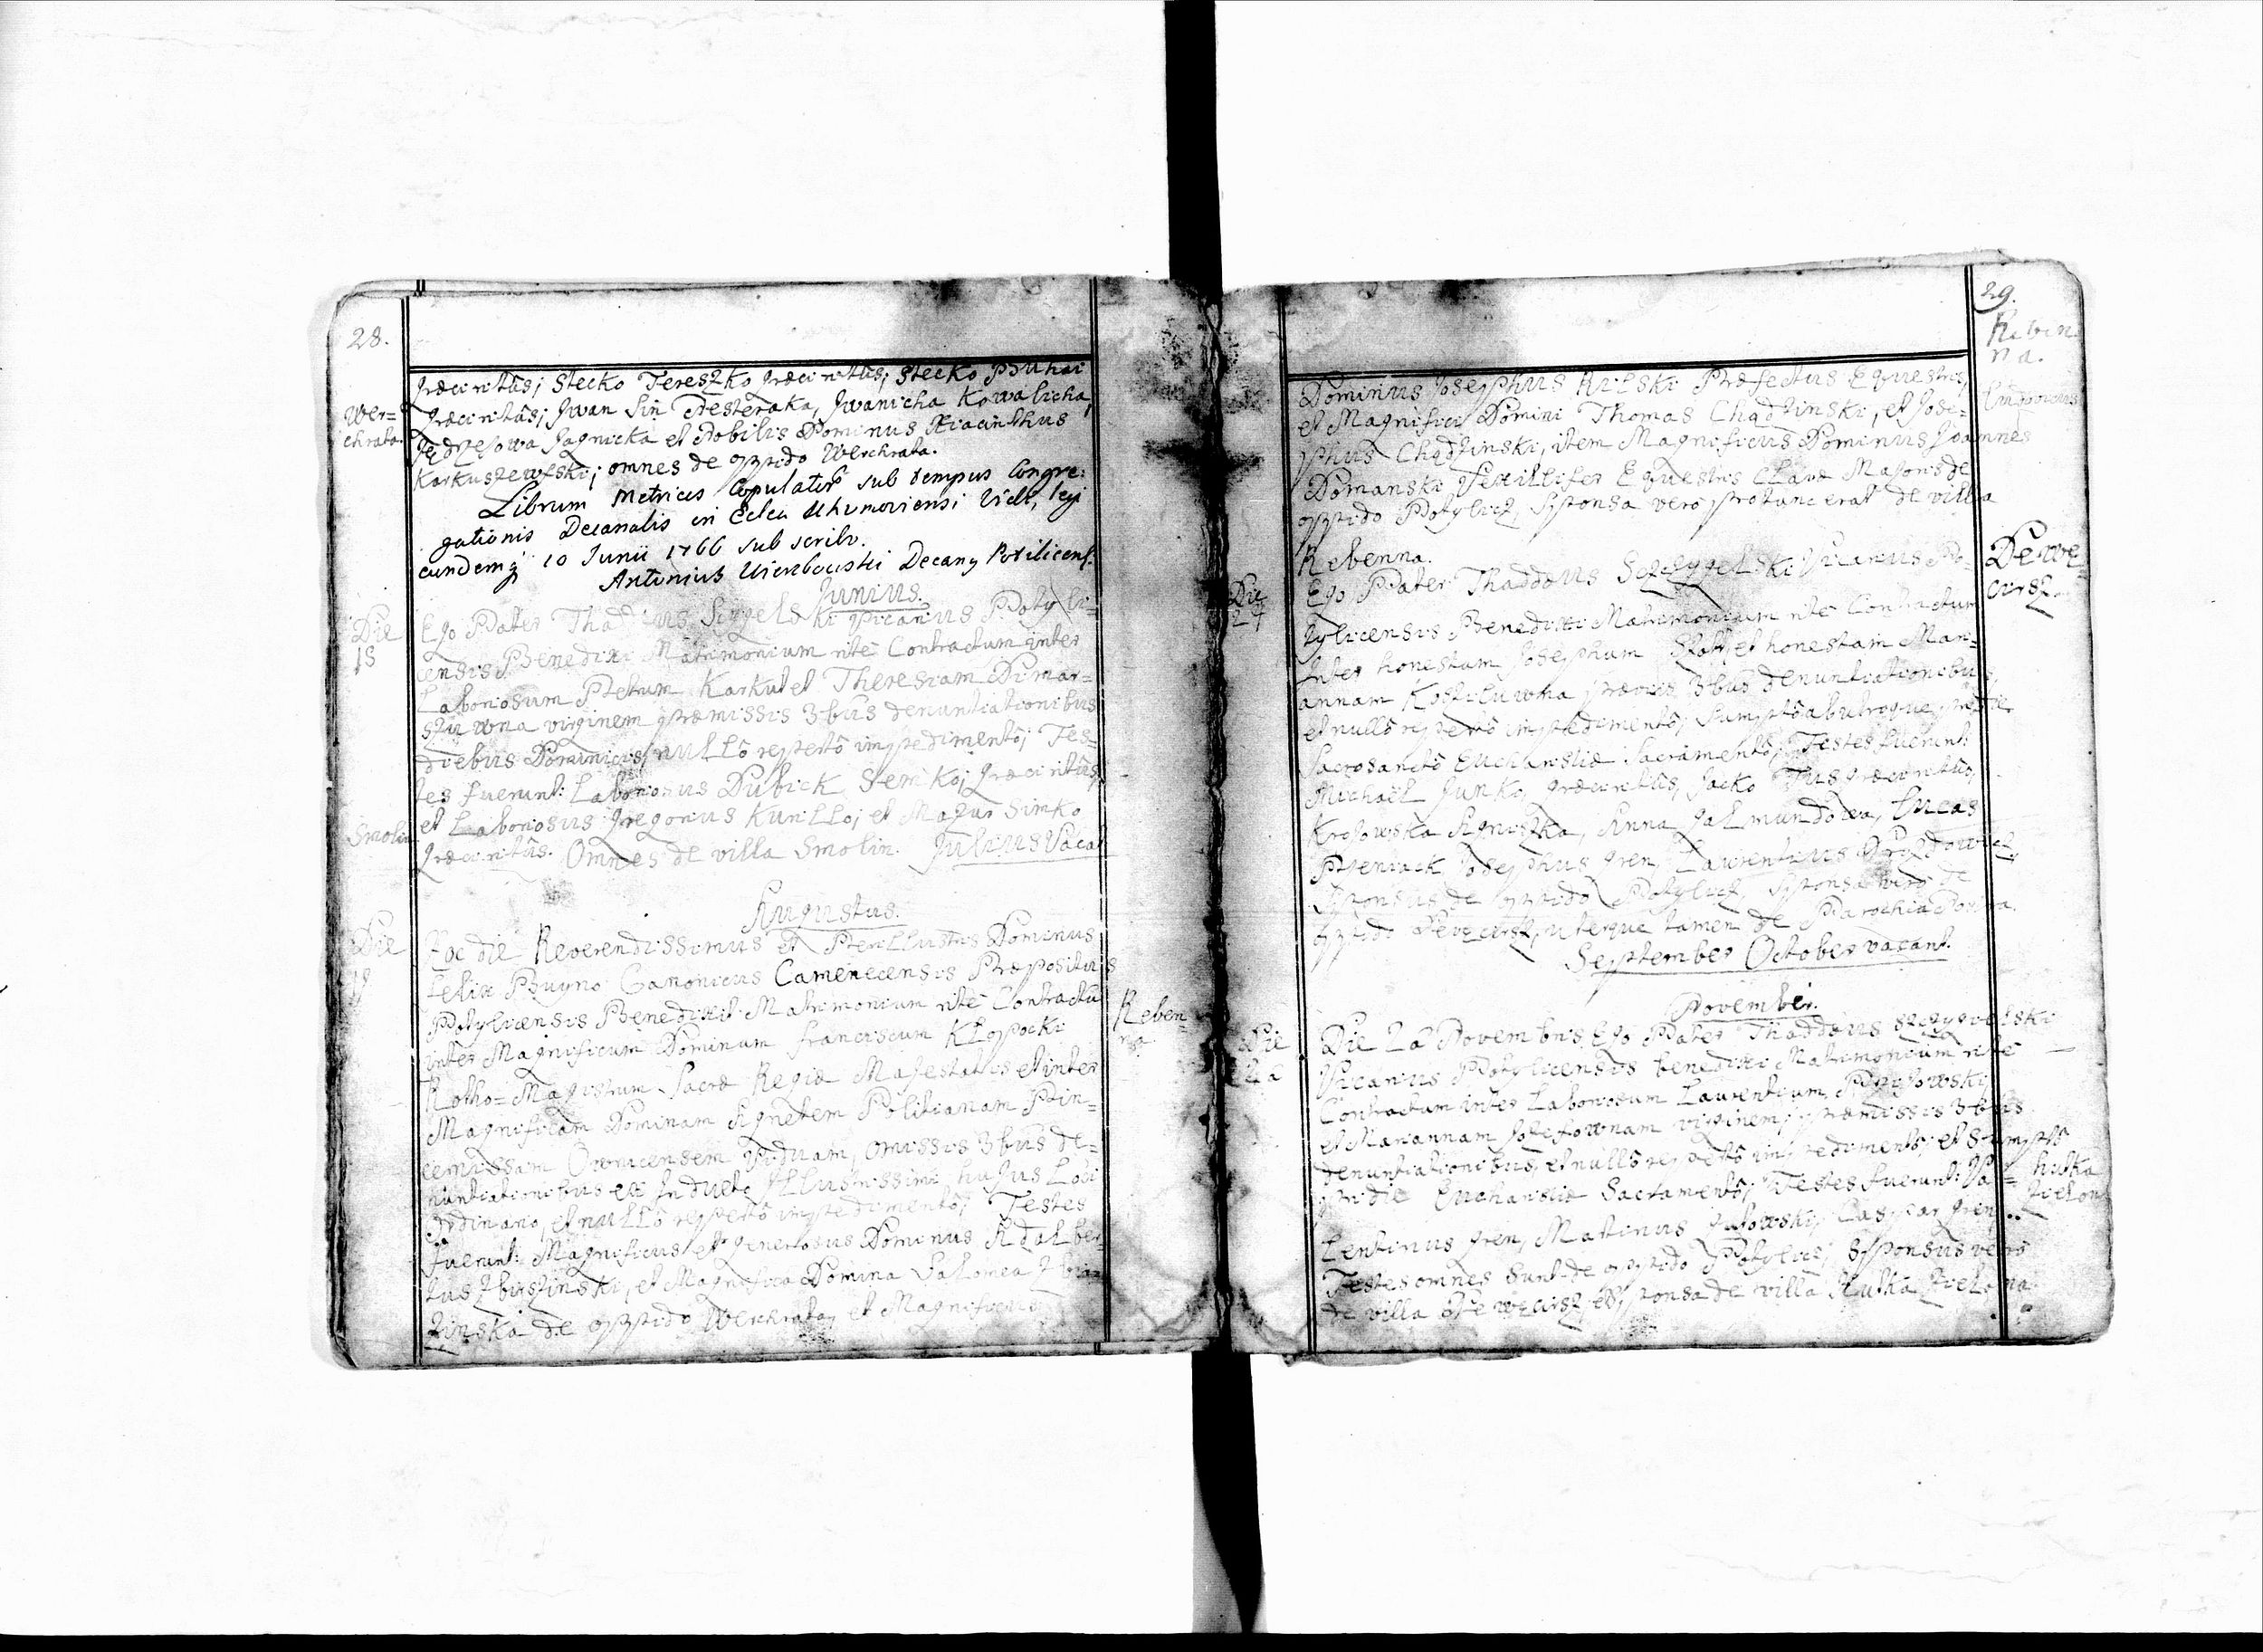 28.
Græci ritûs; Stecko Tereszko Græci ritûs; Stecko Buhai
Wer=
chrata.
Græci ritûs; Jwan Sin Nesteraka, Jwanicha Kowalicha,
Jędrzejowa Jagnicka et Nobilis Dominus Hiacinthus
Karkuszewski; omnes de oppido Werchrata.
Librum Metrices Copulator. sub tempus Congre:
gationis Decanalis in Eccla Uhnoviensi Vidi, legi
eundemq 10 Junii 1766 subscribo.
Antonius Decang Potilicens.
Junius.
Die
18
Ego Pater Thaddæus ki Vicarius Potyli=
censis Benedixi Matrimonium rite Contractum inter
Laboriosum Petrum Karkut et Theresiam Dimar=
szuwna virginem præmissis 3bus denuntiationibus
diebus Dominicis, nullô repertô impedimentô; Tes=
tes fuerunt: Laboriosus Dubick Semko; Græci ritûs,
et Laboriosus Gregorius Kurillo; et Mazur Simko
Smolin
Græci ritûs. Omnes de villa Smolin. Julius Vacat
Augustus.
Die
19
Hoc die Reverendissimus et Perillustris Dominus
Felix Buyno Canonicus Camenecensis Præpositus
Potylicensis Benedixit Matrimonium rite Contractū
Reben=
na
inter Magnificum Dominum Franciscum Kłopocki
Rotho=Magistrum Sacræ Regiæ Majestatis et inter
Magnificam Dominam Agnetem Politianam Pin=
cernissam Owrucensem Viduam, omissis 3bus de=
nuntiationibus ex Indulto Illustrissimi hujus Loci
Ordinario, et nullô repertô impedimentô; Testes
fuerunt: Magnificus et Generosus Dominus Adalber=
tus Zbirzinski, et Magnifica Domina Salomea Zbir
zinska de oppido Werchrata, et Magnificus
29.
Reben=
na.
Dominus Josephus Rulski Præfectus Equestris,
et Magnifici Domini Thomas Chądzinski, et Jose=
phus Chądzinski, item Magnificus Dominus Joannes
Domanski Vexillifer Equestris Clavæ Majoris de
oppido Potylicz, Sponsa vero de villa
Rebenna.
Dewe=
cirsz.
Die
27
Ego Pater Thaddæus Szczygelski Vicarius Po=
tylicensis Benedixi Matrimonium rite Contractum
Inter honestum Josephum et honestam Mari=
annam præviis 3bus denuntiationibus,
et nullô repertô impedimentô; Sumptô ab utroque pridie
Sacrosanctô Eucharistiæ Sacramentô; Testes fuerunt:
Michaël Junko, Græci ritûs, Jacko Græci ritûs,
Krojowska Agniszka, Anna Galmundowa, Lucas
Pieniack Josephus Gren, Laurentius Drozdowicz,
Sponsus de oppido Potylicz, Sponsa vero de
oppido uterque tamen de Parochia
September October vacant.
November.
Die
2a
Die 2a Novembris Ego Pater Thaddæus Szczygelski
Vicarius Potylicensis benedixi Matrimonium rite
Contractum inter Laboriosum Laurentium
et Mariannam Jozefownam virginem; præmissis 3bus
denuntiationibus, et nullô repertô impedimentô; et Sumptô
pridie Eucharistiæ Sacramentô; Testes fuerunt: Va=
hutka
Zielon
lentinus Gren, Matinus Caspar Gren
Testes omnes sunt de oppido Potylicz; Sponsus vero
de villa et Sponsa de villa Hutka Zielona.